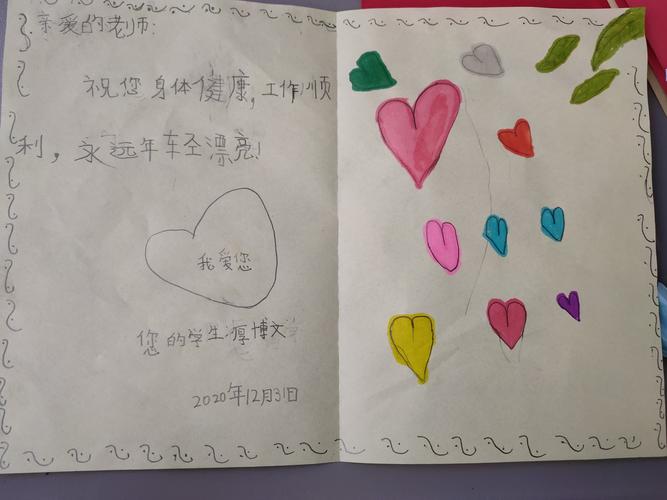 亲爱的老师:
祝您身体健康,工作顺
利,永远年轻漂亮!
我爱您
您的学生:厚博文
2020年12月31日